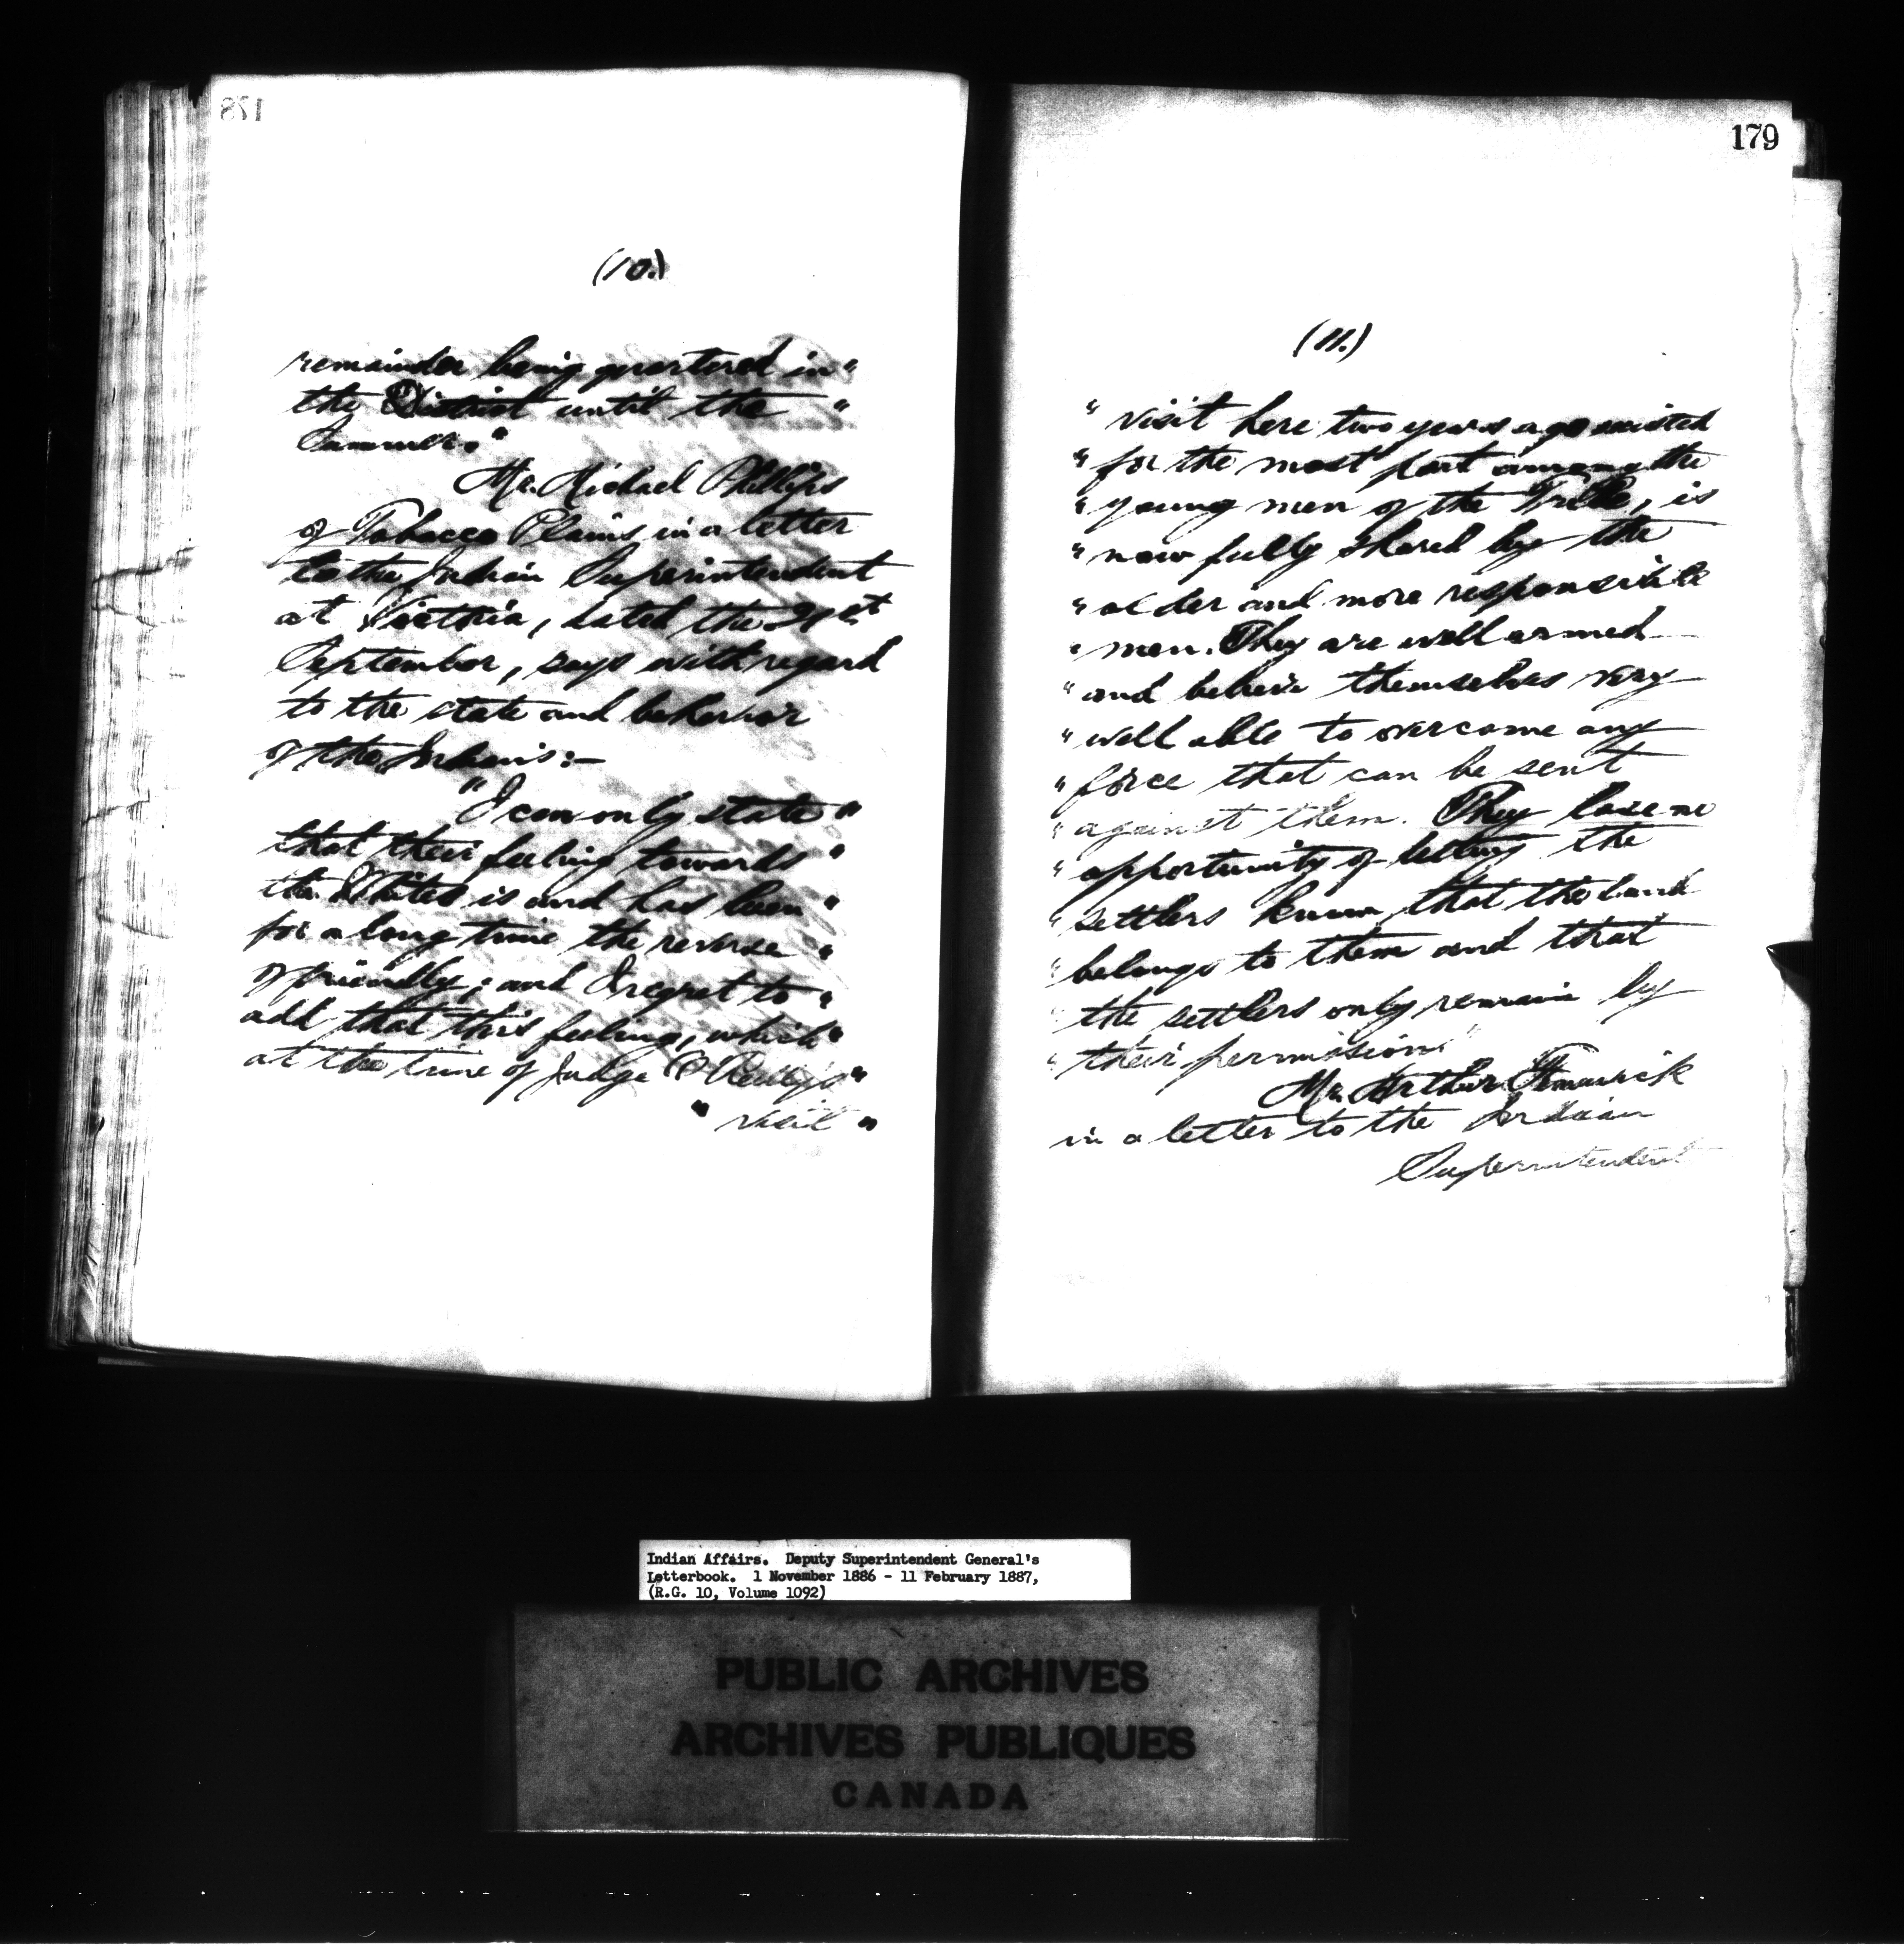 178
(10.)
remainder being quartered in "
the District until the "
Summer."
Mr. Michael Phillips
of Tobacco Plains in a letter
to the Indian Superintendent
at Victoria, dated the 21st
September, says with regard
to the state and behavior
of the Indians:-
"I can only state "
that their feeling towards "
the Whites is and has been "
for a long time the reverse "
of friendly; and I regret to "
add that this feeling, which "
at the time of Judge O'Reilly's "
" visit "
179
(11.)
" visit here two years ago existed
" for the most part among the
" young men of the Tribe, is
" now fully shared by the
" older and more responsible
" men. They are well armed
" and believe themselves very
" well able to overcome any
" force that can be sent
" against them. They lose no
" opportunity of letting the
" settlers know that the land
" belongs to them and that
" the settlers only remain by
" their permission"
Mr. Arthur Fenwick
in a letter to the Indian
Superintendent
Indian Affairs. Deputy Superintendent General's
Letterbook. 1 November 1886 - 11 February 1887,
(R.G. 10, Volume 1092)
PUBLIC ARCHIVES
ARCHIVES PUBLIQUES
CANADA